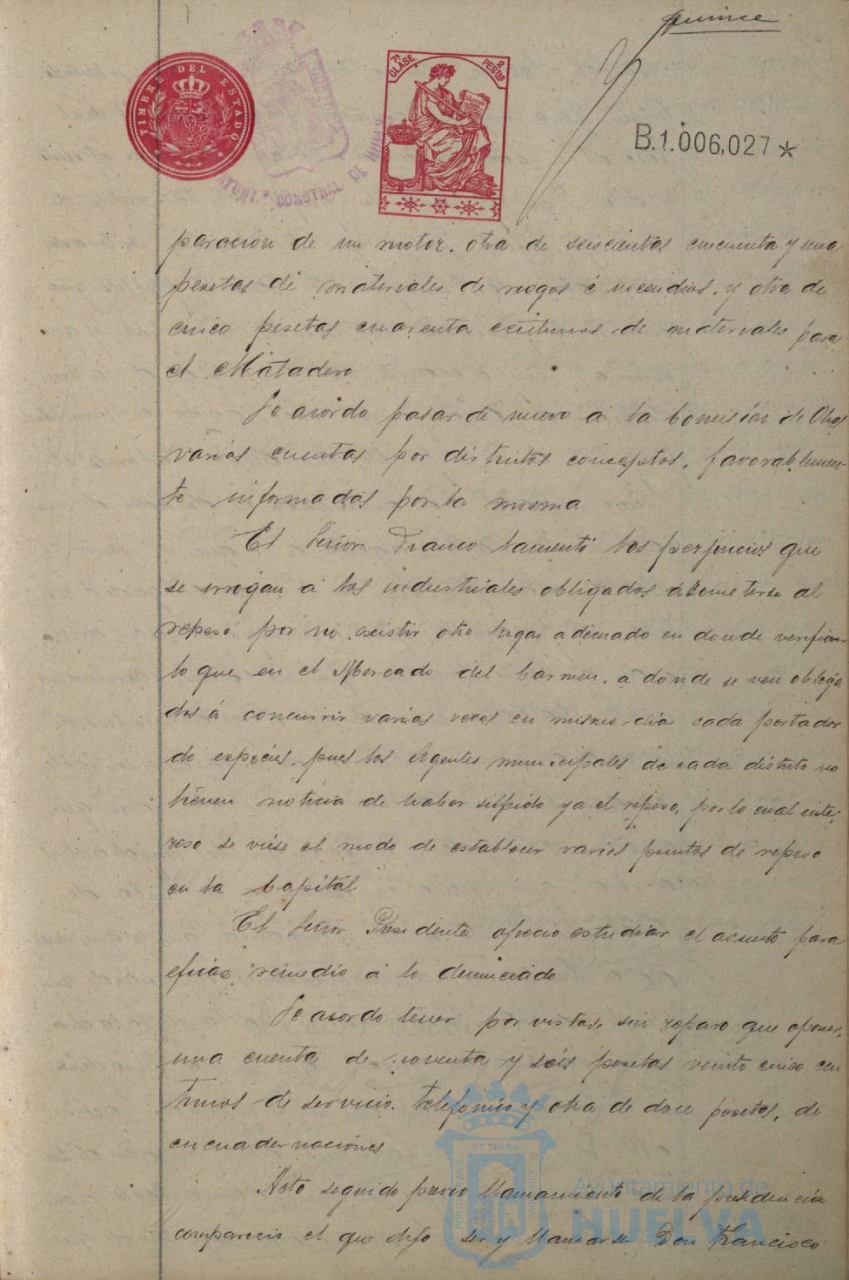 quince
TIMBRE DEL ESTADO
7ª CLASE 2 PESETAS
AYUNT.º CONSTNAL DE HUELVA
B.1.006,027*
paracion de un motor. otra de seiscientas cincuenta y una
pesetas de materiales de riegos é incendios. y otra de
cinco pesetas cuarenta centimos de materiales para
el Matadero
Se acordo pasar de nuevo a la Comisión de Obras
varias cuentas por distintos conceptos, favorablemen-
te informadas por la misma
El Señor Franco lamentó los perjuicios que
se irrogan á los industriales obligados á someterse al
repeso por no existir otro lugar adecuado en donde verificar-
lo que en el Mercado del Carmen, a donde se ven obliga-
dos á concurrir varias veces en mismo dia cada portador
de especies, pues los Agentes municipales de cada distrito no
tienen noticia de haber sufrido ya el repeso, por lo cual inte-
reso se viese el modo de establecer varios puntos de repeso
en la Capital
El Señor Presidente ofrecio estudiar el asunto para
eficaz remedio á lo denunciado
Se acordo tener por vistas, sin reparo que oponer,
una cuenta de noventa y seis pesetas veinte cinco cen
timos de servicio telefonico y otra de doce pesetas, de
encuadernaciones
Acto seguido previo llamamiento de la presidencia
comparecio el que dijo ser y llamarse Don Francisco
Ayuntamiento de
HUELVA